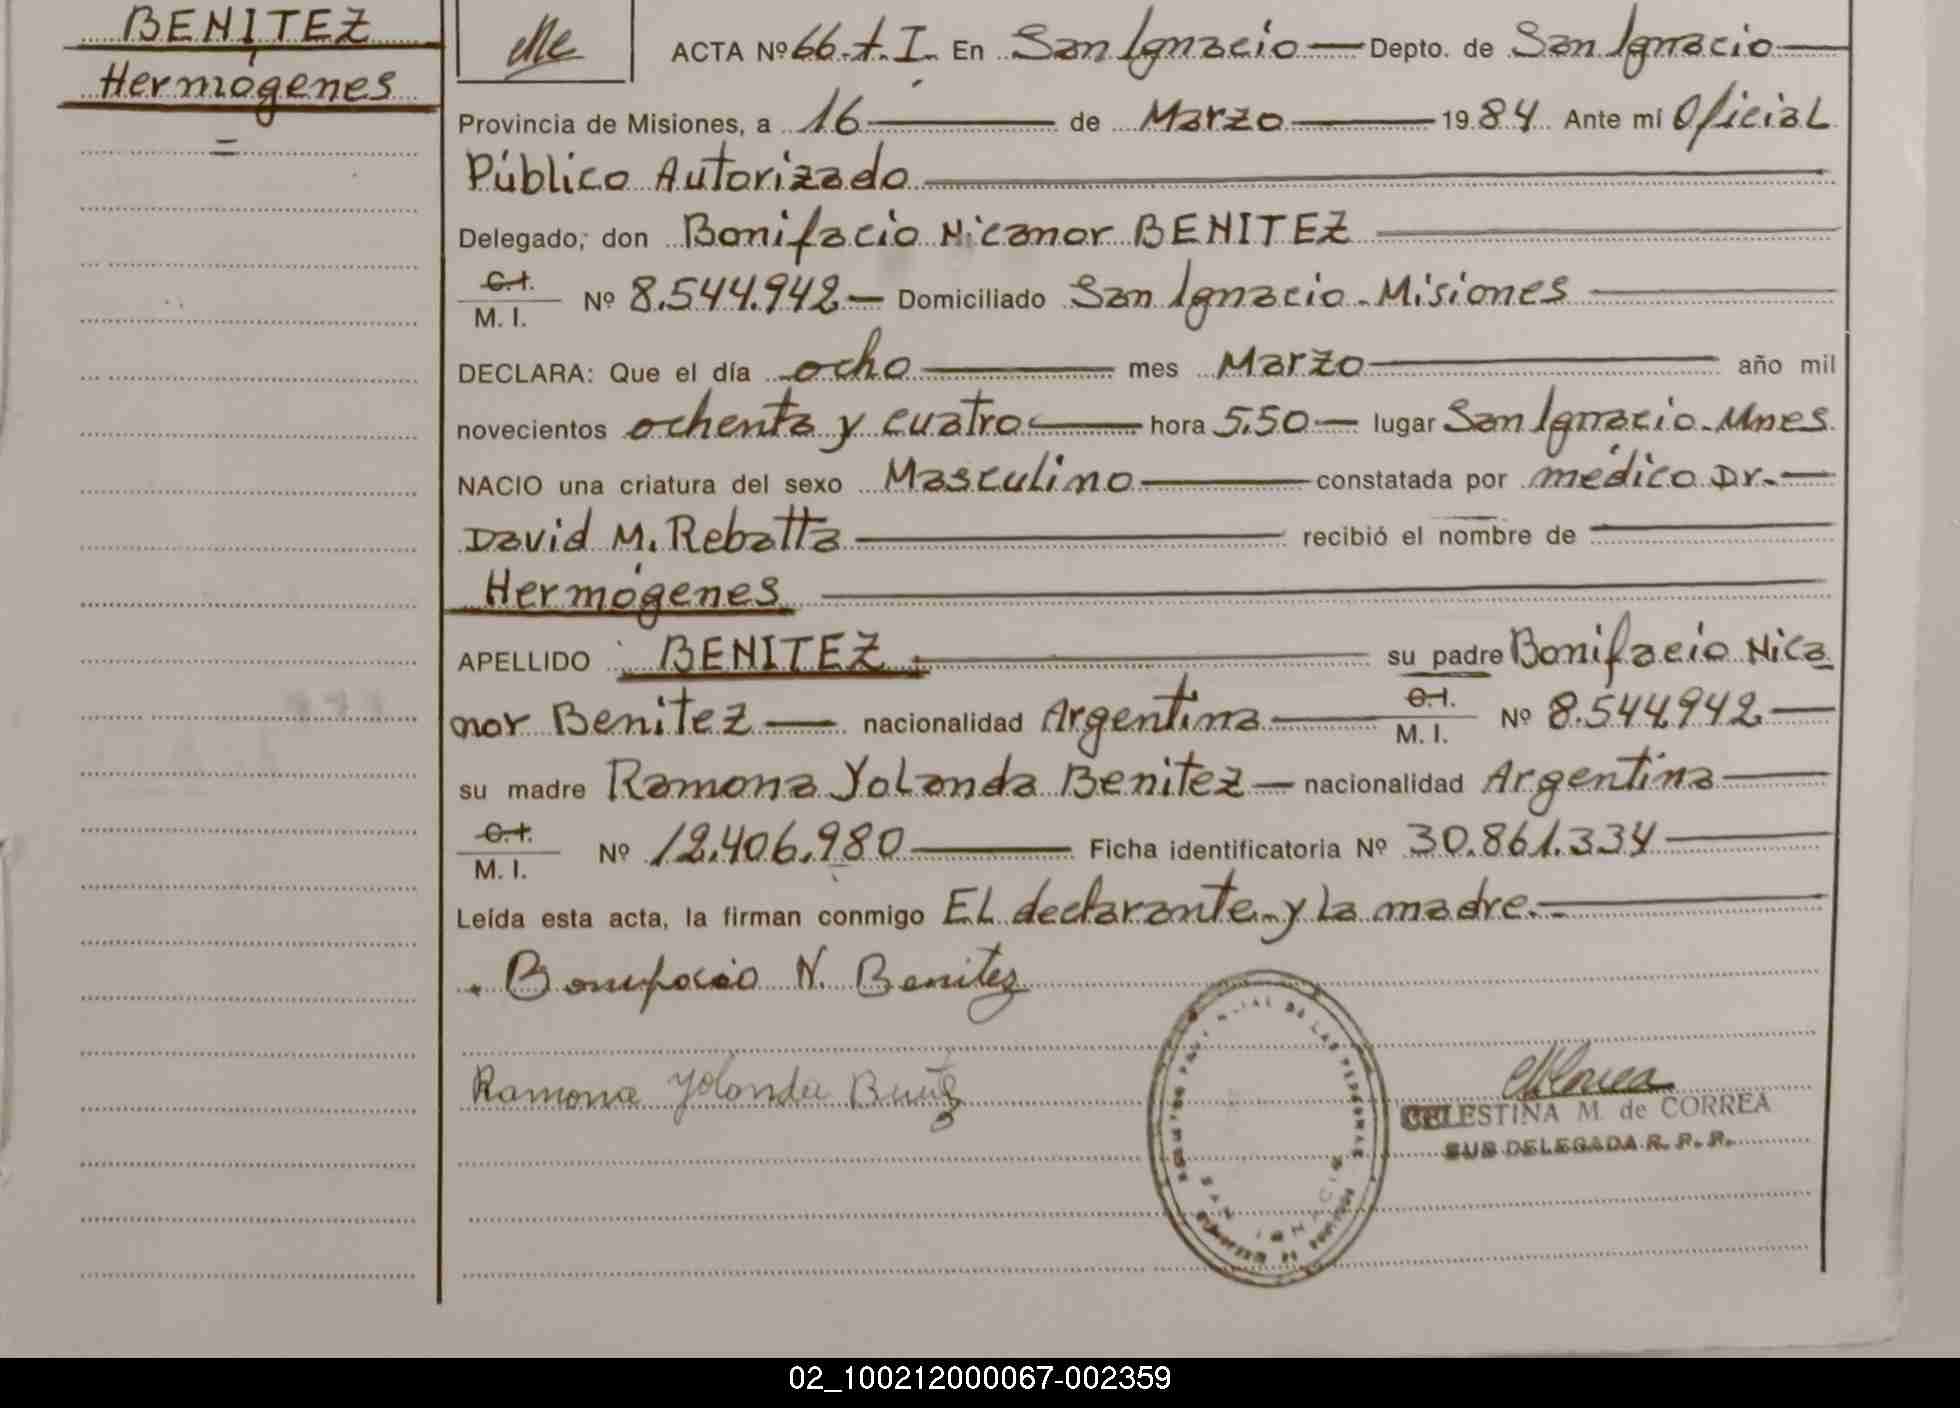 BENITEZ
Hermógenes
=
ACTA Nº 66-t.I. En San Ignacio Depto. de San Ignacio
Provincia de Misiones, a 16 de Marzo 1984 Ante mi Oficial
Público Autorizado
Delegado, don Bonifacio Nicanor BENITEZ
C.I.
M. I. Nº 8.544.942 Domiciliado San Ignacio-Misiones
DECLARA: Que el día ocho mes Marzo año mil
novecientos ochenta y cuatro hora 5.50 lugar San Ignacio-Mnes.
NACIO una criatura del sexo Masculino constatada por médico Dr.
David M. Rebatta recibió el nombre de
Hermógenes
APELLIDO BENITEZ su padre Bonifacio Nica
nor Benitez nacionalidad Argentina C.I.
M. I. Nº 8.544.942
su madre Ramona Yolanda Benitez nacionalidad Argentina
C.I.
M. I. Nº 12.406.980 Ficha identificatoria Nº 30.861.334
Leída esta acta, la firman conmigo El declarante y la madre.
Bonifacio N. Benitez
Ramona Yolanda
DE LAS PERSONAS
SAN IGNACIO
CELESTINA M. de CORREA
SUB DELEGADA R. P. P.
02_100212000067-002359